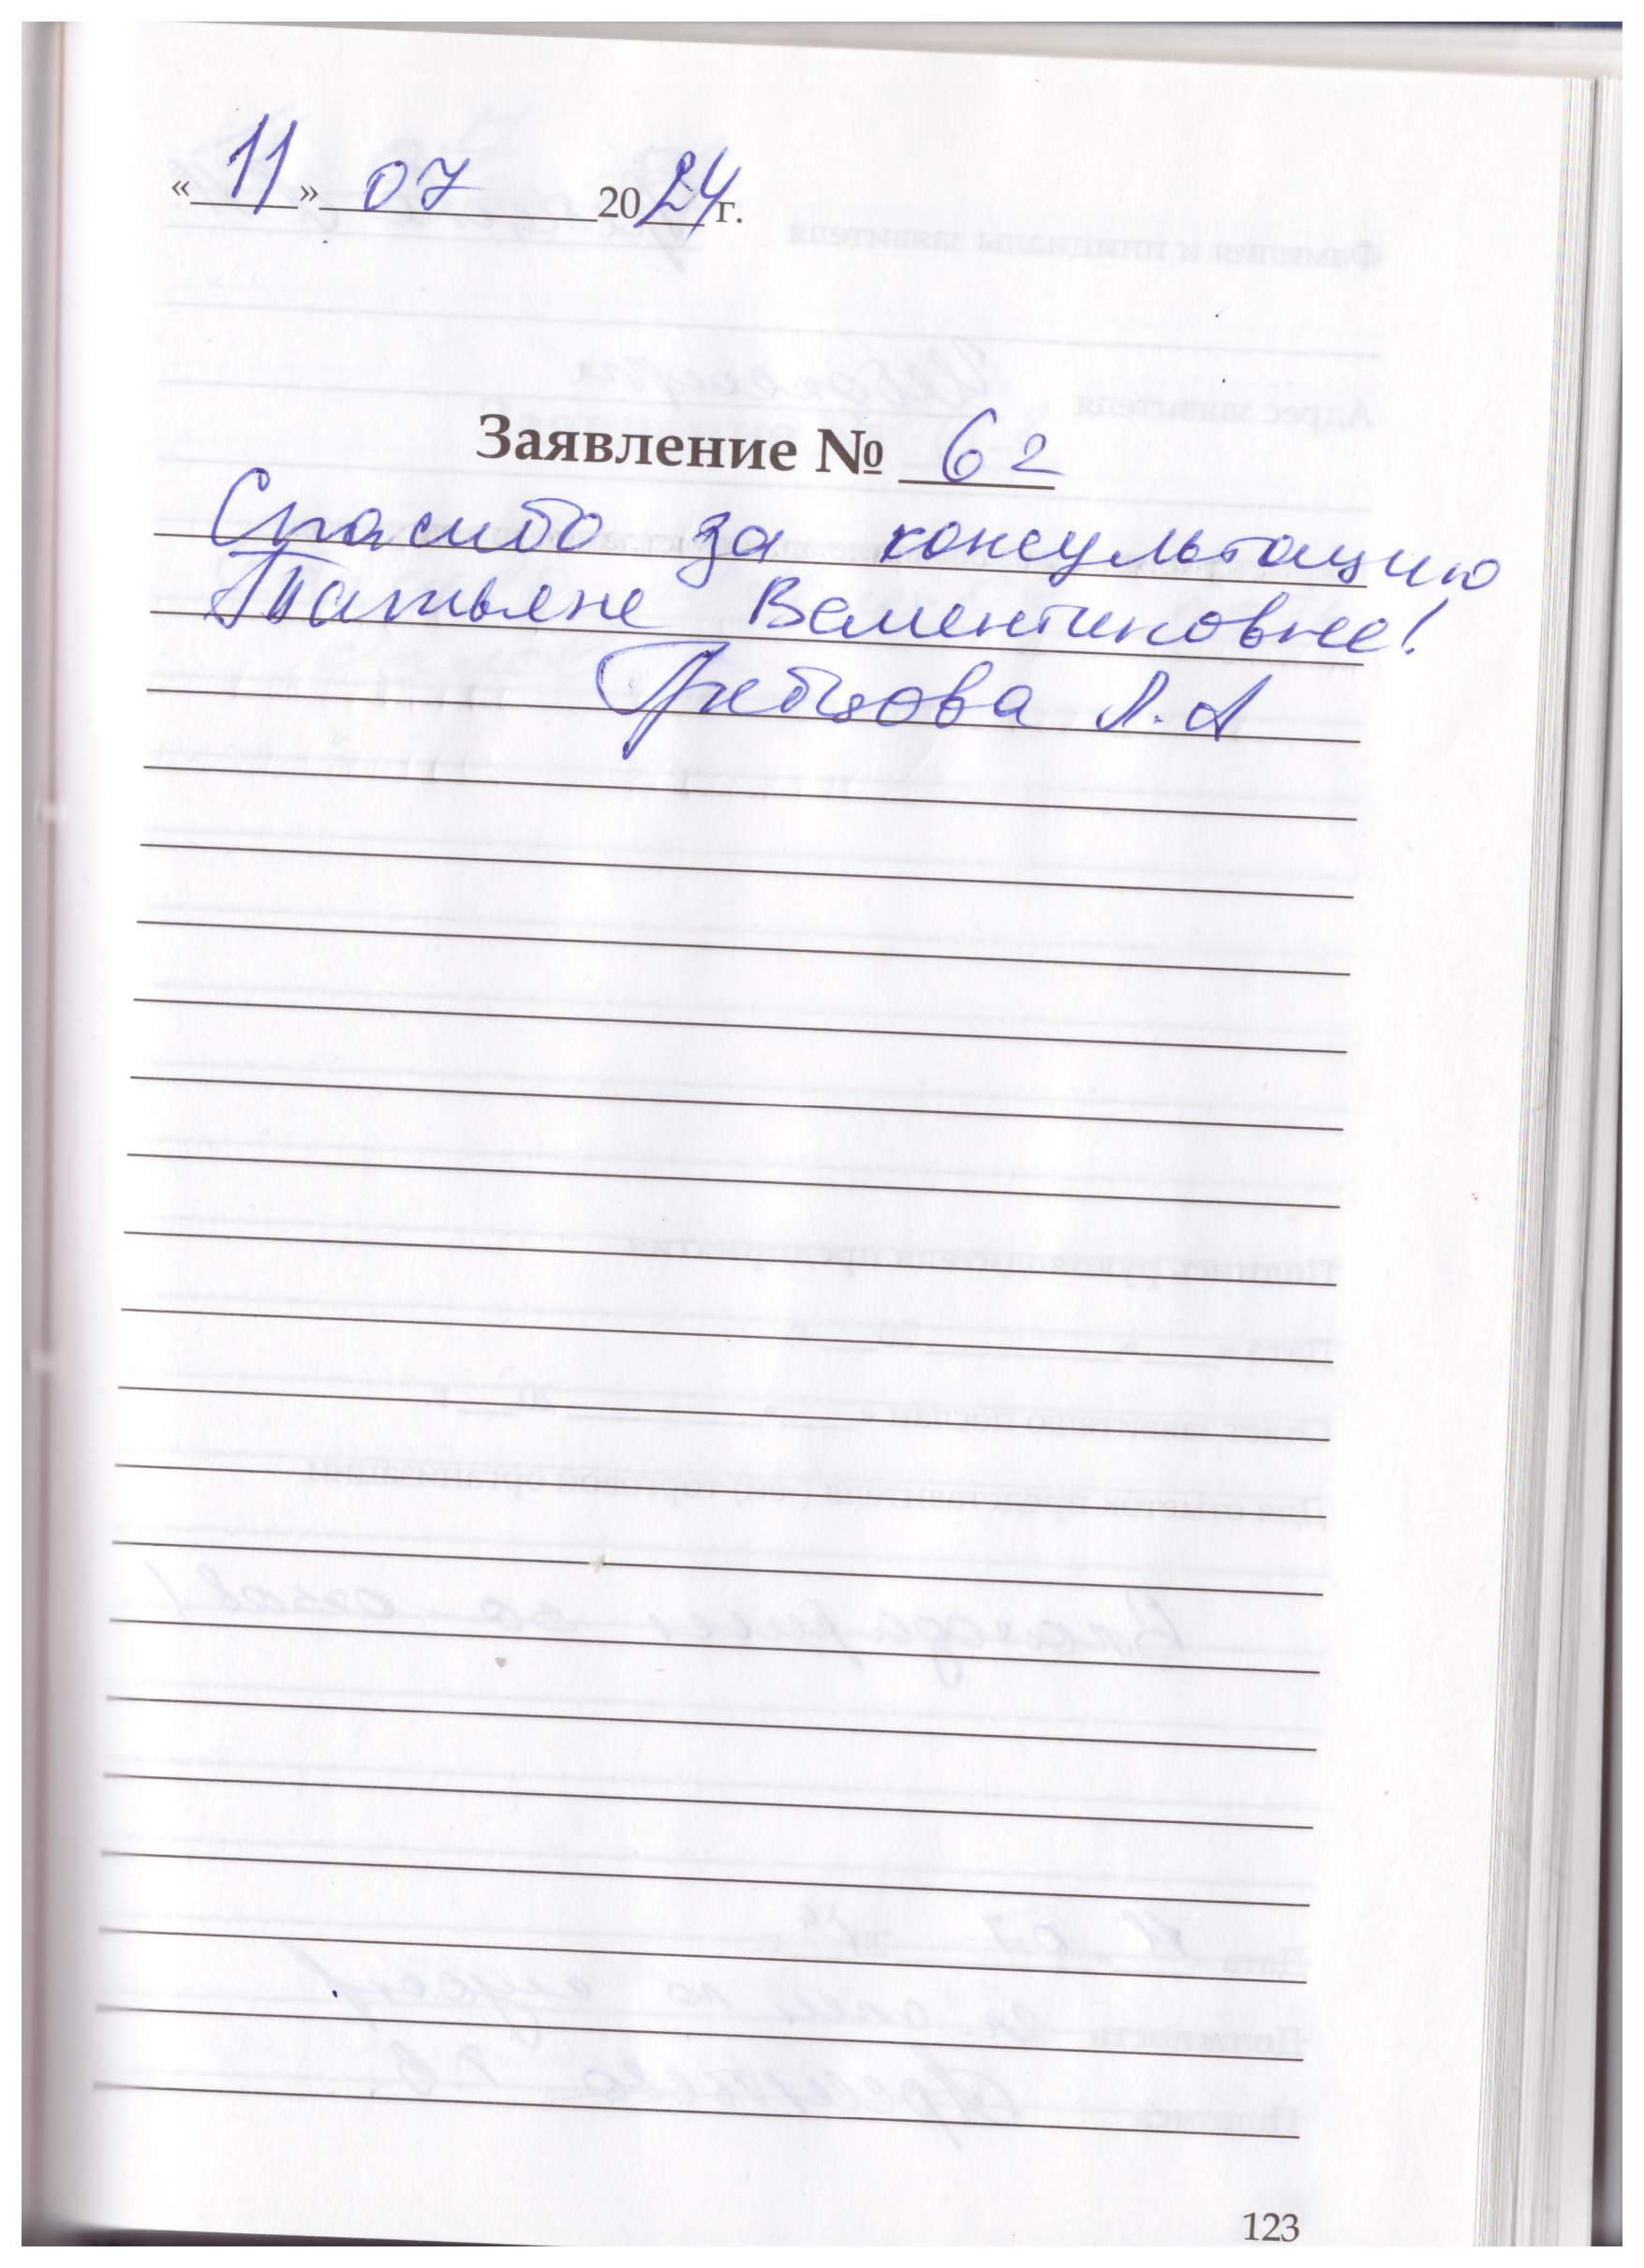 «11» 07 2024 г.
Заявление № 62
Спасибо за консультацию
Татьяне Валентиновне!
Л. А
123